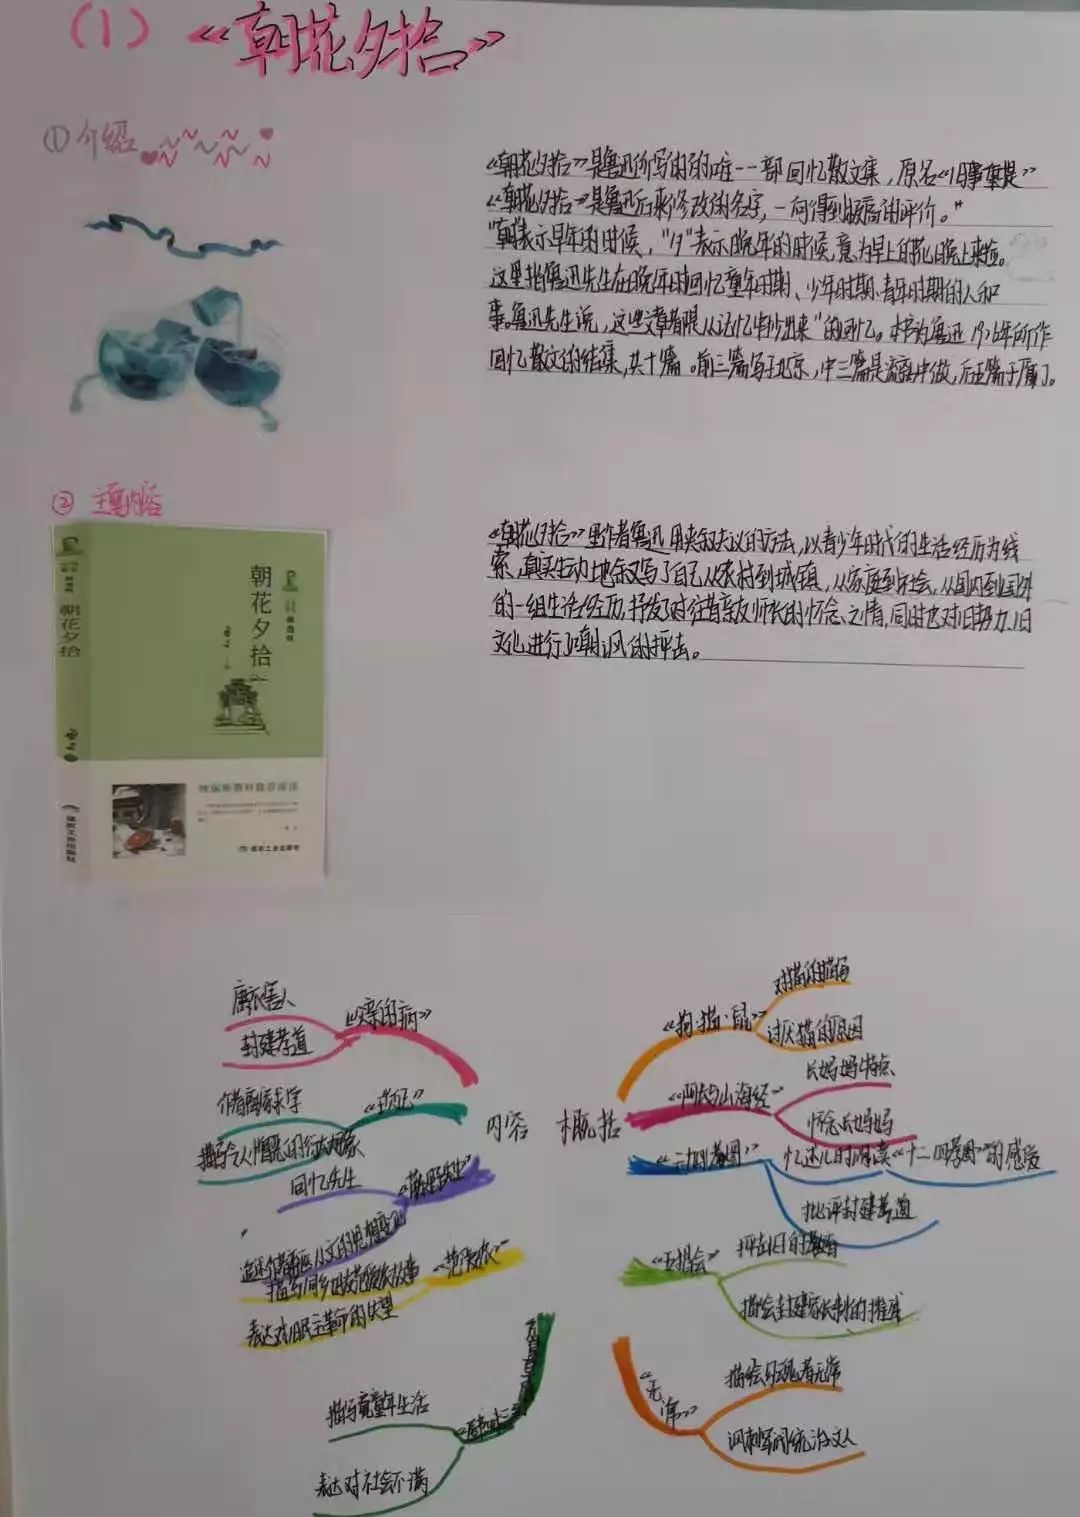 (1) 《朝花夕拾》
① 介绍
《朝花夕拾》是鲁迅所写的的唯一一部回忆散文集，原名《旧事重提》
《朝花夕拾》是鲁迅后来修改的名字，一向得到极高的评价。"
"朝表示早年的时候，"夕"表示晚年的时候，意为早上的花晚上来捡。
这里指鲁迅先生在晚年时回忆童年时期、少年时期、青年时期的人和
事。鲁迅先生说，这些文章都是"从记忆中抄出来"的回忆。本书为鲁迅1926年所作
回忆散文的结集，共十篇。前三篇写于北京，中三篇是流离中做，后五篇于厦门。
② 主要内容
《朝花夕拾》里作者鲁迅用夹叙夹议的方法，以青少年时代的生活经历为线
索，真实生动地叙写了自己从农村到城镇，从家庭到社会，从国内到国外
的一组生活经历，抒发了对往昔亲友师长的怀念之情，同时也对旧势力、旧
文化进行了嘲讽的抨击。
朝花夕拾
朝花夕拾
煤炭工业出版社
煤炭工业出版社
内容 概括
《父亲的病》
庸医害人
封建孝道
《琐记》
作者离家求学
《藤野先生》
回忆先生
追述作者弃医从文的思想变化
《范爱农》
描写同乡旧故范爱农故事
表达对旧民主革命的失望
描写童年生活
表达对社会不满
《狗·猫·鼠》
对猫的描写
讨厌猫的原因
《阿长与山海经》
长妈妈特点
怀念长妈妈
《二十四孝图》
忆述儿时阅读《十二四孝图》的感受
批评封建孝道
《五猖会》
抨击旧的教育
描绘封建家长制的摧残
《无常》
描绘勾魂者无常
讽刺军阀统治文人